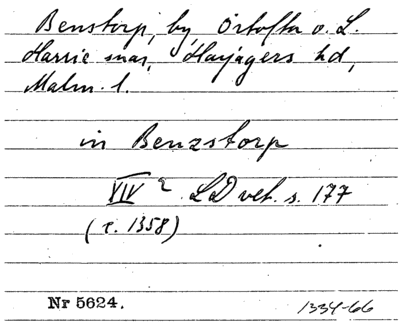 Benstorp, by, Örtofta o. L.
Harrie snar, Harjagers hd,
Malm. l.
in Benzstorp
XIV 2 LD vet. s. 177
(c. 1358)
Nr 5624.
1334-66